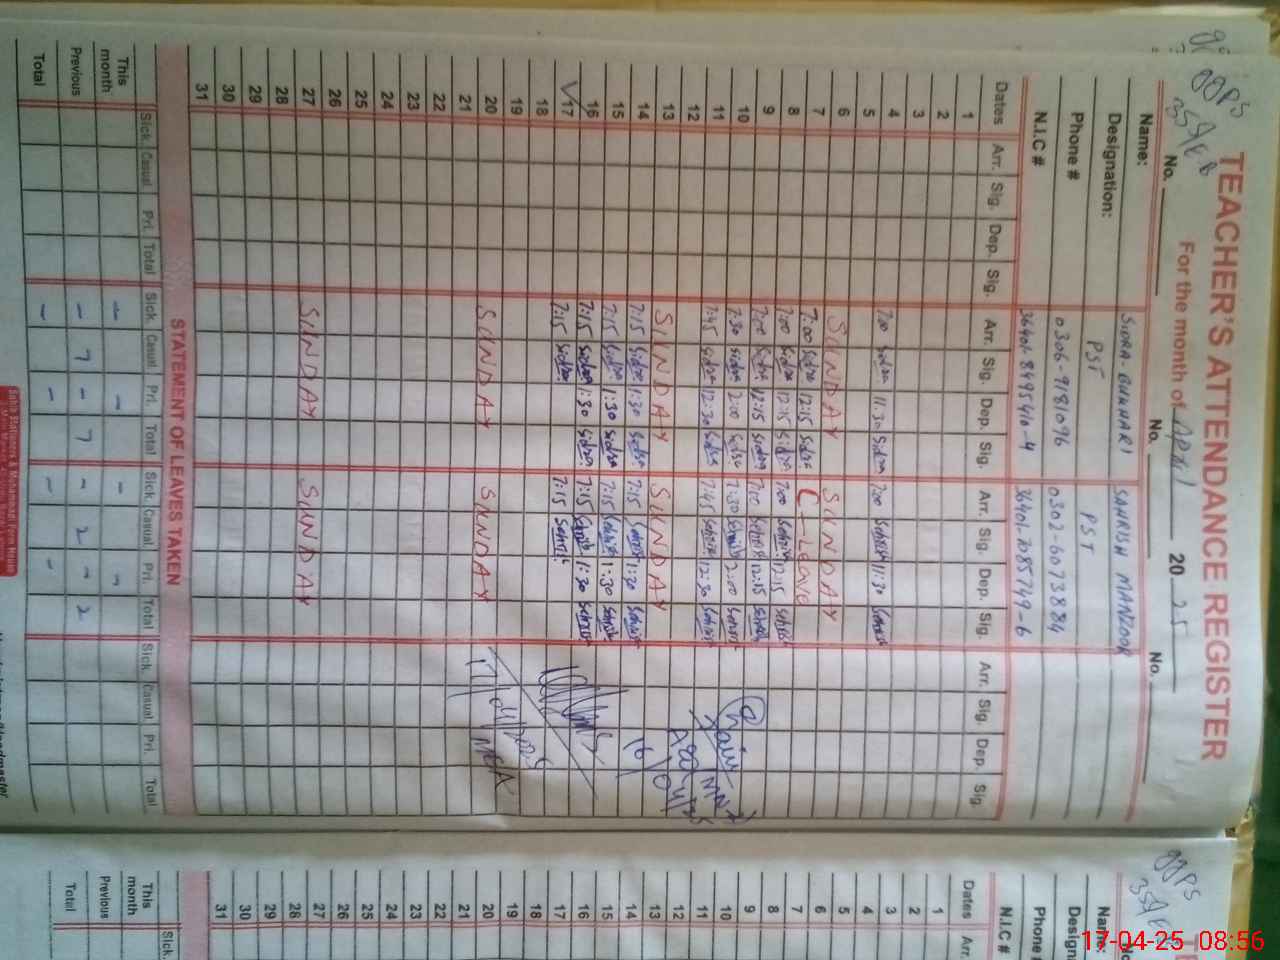 GGPS
359/EB
TEACHER'S ATTENDANCE REGISTER
For the month of April 2025
No. No. No.
Name: SIDRA-BUKHARI SAHRISH MANZOOR
Designation: PST PST
Phone # 0306-9181096 0302-6073884
N.I.C # 36401-8495410-4 36401-2085749-6
Dates Arr. Sig. Dep. Sig. Arr. Sig. Dep. Sig. Arr. Sig. Dep. Sig. Arr. Sig. Dep. Sig.
1
2
3
4
5 7:00 Sidra 11:30 Sidra 7:00 Sehrish 11:30 Sehrish
6 SUNDAY SUNDAY
7 7:00 Sidra 12:15 Sidra C-Leave
8 7:00 Sidra 12:15 Sidra 7:00 Sehrish 12:15 Sehrish
9 7:00 Sidra 12:15 Sidra 7:00 Sehrish 12:15 Sehrish
10 7:30 Sidra 2:00 Sidra 7:30 Sehrish 2:00 Sehrish
11 7:45 Sidra 12:30 Sidra 7:45 Sehrish 12:30 Sehrish
12
13 SUNDAY SUNDAY
14 7:15 Sidra 1:30 Sidra 7:15 Sehrish 1:30 Sehrish
15 7:15 Sidra 1:30 Sidra 7:15 Sehrish 1:30 Sehrish
16 7:15 Sidra 1:30 Sidra 7:15 Sehrish 1:30 Sehrish
17 7:15 Sidra 7:15 Sehrish
18
19
20 SUNDAY SUNDAY
21
22
23
24
25
26
27 SUNDAY SUNDAY
28
29
30
31
16/04/25
17/04/2025
MEA
STATEMENT OF LEAVES TAKEN
Sick. Casual Pri. Total Sick. Casual Pri. Total Sick. Casual Pri. Total Sick. Casual Pri. Total
This month - - - -
Previous - 7 - 7 - 2 - 2
Total - - - -
GGPS
359/EB
Name:
Phone #
N.I.C #
Dates Arr.
1
2
3
4
5
6
7
8
9
10
11
12
13
14
15
16
17
18
19
20
21
22
23
24
25
26
27
28
29
30
31
Sick.
This month
Previous
Total
17-04-25 08:56